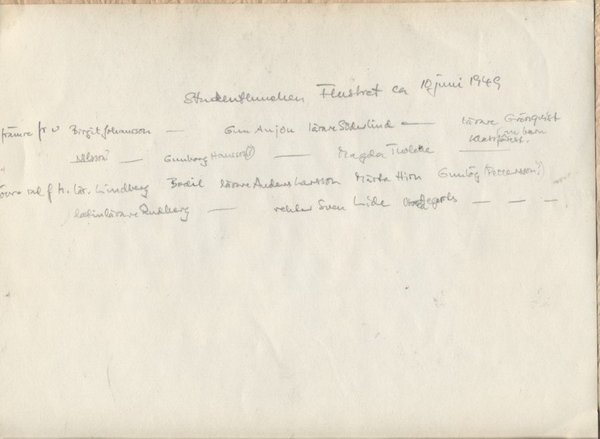 Studentlunchen Flustret ca 10 juni 1949
främre fr v Birgit Johansson — Gun Anjou lärare Söderlind — lärare Granqvist
Nilsson? — Gunborg Hansson(?) — Magda
övre rad f h. lär. Lundberg Bodil lärare Anders Larsson Märta Hiron Gunlög (Pettersson?)
latinlärare Rudberg — rektor Sven Lide — — —